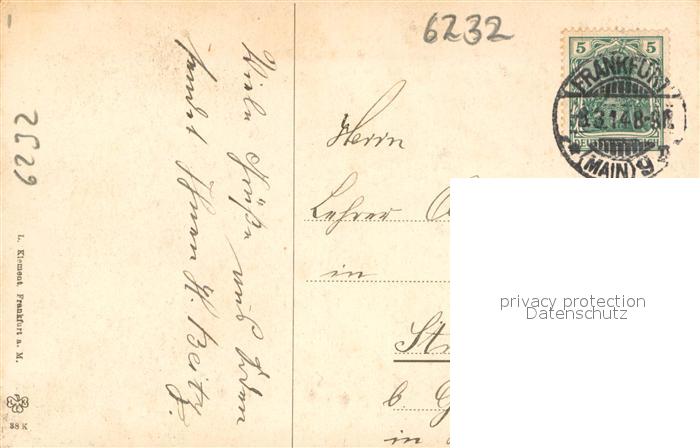 6232
2529
Viele Grüße aus
sendet Ihnen H. Beitz.
L. Klement, Frankfurt a. M.
38 K
5 5
FRANKFURT
3.14.8-9
(MAIN) 9
Herrn
Lehrer
in
b
in
privacy protection
Datenschutz